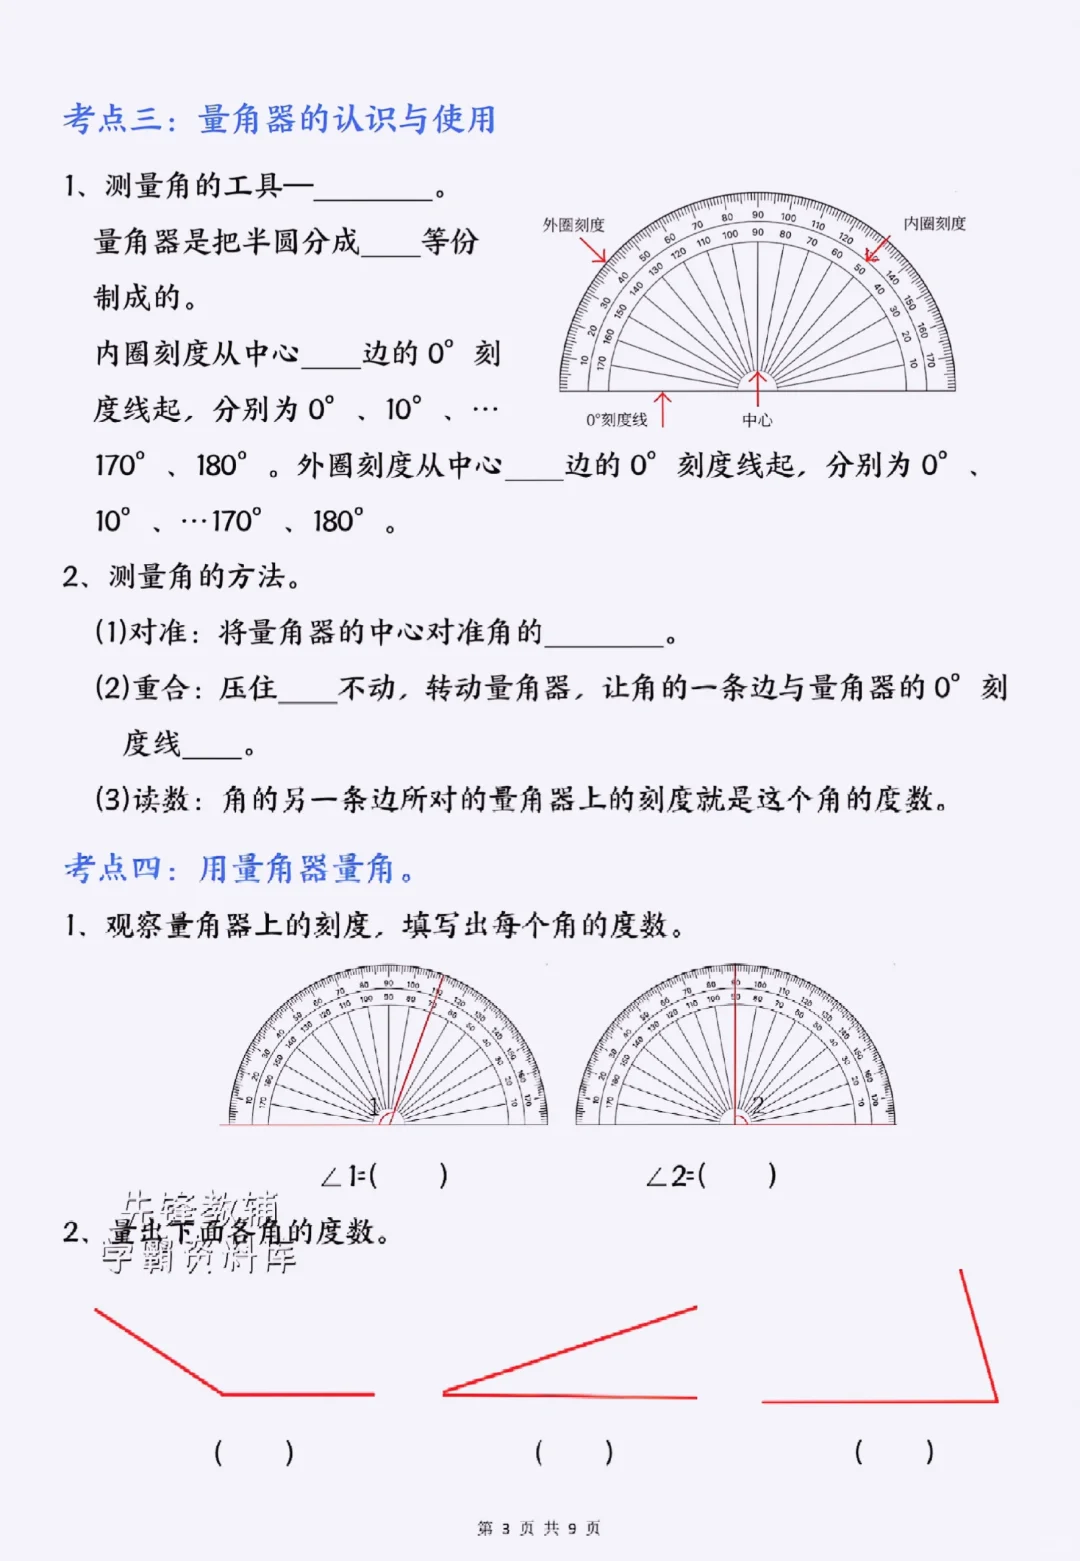 考点三：量角器的认识与使用
1、测量角的工具—________。
量角器是把半圆分成____等份
制成的。
内圈刻度从中心____边的 0° 刻
度线起，分别为 0° 、10° 、…
170° 、180° 。外圈刻度从中心____边的 0° 刻度线起，分别为 0° 、
10° 、…170° 、180° 。
外圈刻度
内圈刻度
0°刻度线
中心
2、测量角的方法。
(1)对准：将量角器的中心对准角的________。
(2)重合：压住____不动，转动量角器，让角的一条边与量角器的 0° 刻
度线____。
(3)读数：角的另一条边所对的量角器上的刻度就是这个角的度数。
考点四：用量角器量角。
1、观察量角器上的刻度，填写出每个角的度数。
1
2
∠1=(    )
∠2=(    )
2、量出下面各角的度数。
先锋教辅
学霸资料库
(    )
(    )
(    )
第 3 页 共 9 页